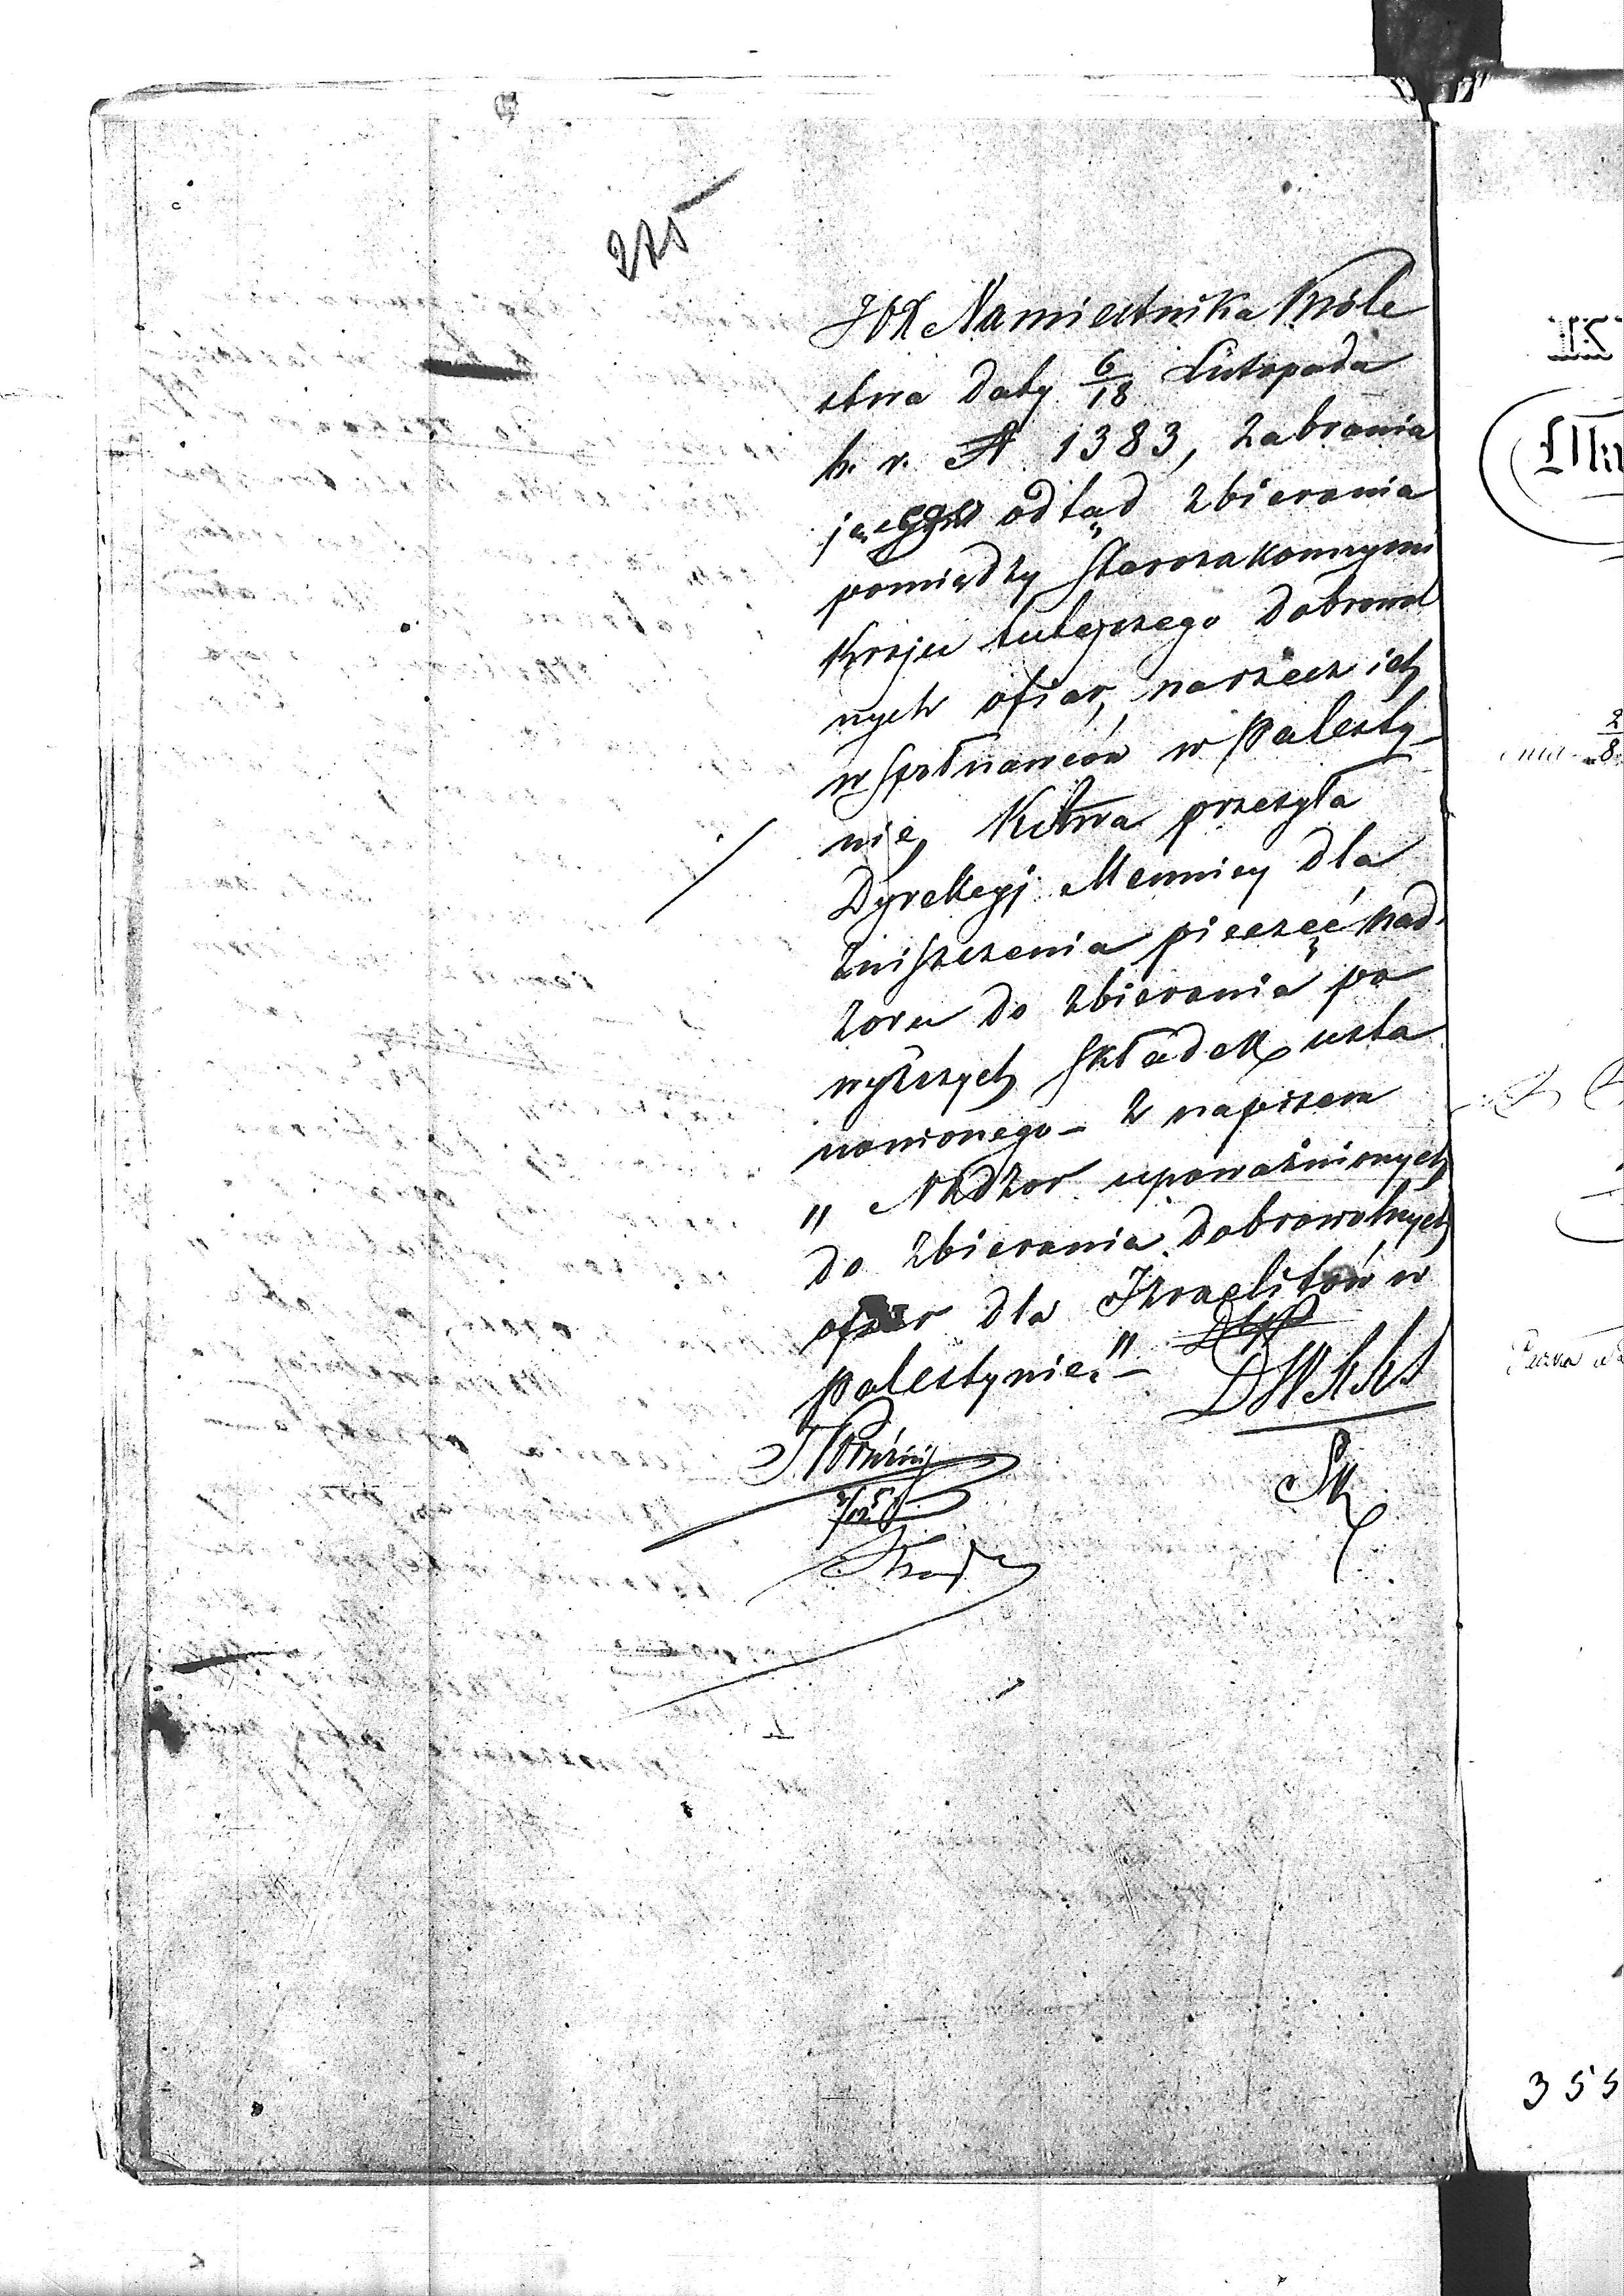 275
JOX Namiestnika Króle
stwa daty 6/18 Listopada
b. r. N 1383, zabrania
jącego odtąd zbierania
pomiędzy Starozakonnymi
Kraju tutejszego dobrowol
nych ofiar, narzecz ich
współziomków w Palesty-
nie, przesyła
Dyrekcyi Mennicy dla
zniszczenia pieczęć Nad-
zoru do zbierania po
wyższych Składek usta
nowionego - z napisem
"Nadzor upoważnionych
do zbierania dobrowolnych
ofiar dla Izraelitów w
Palestynie."-
355